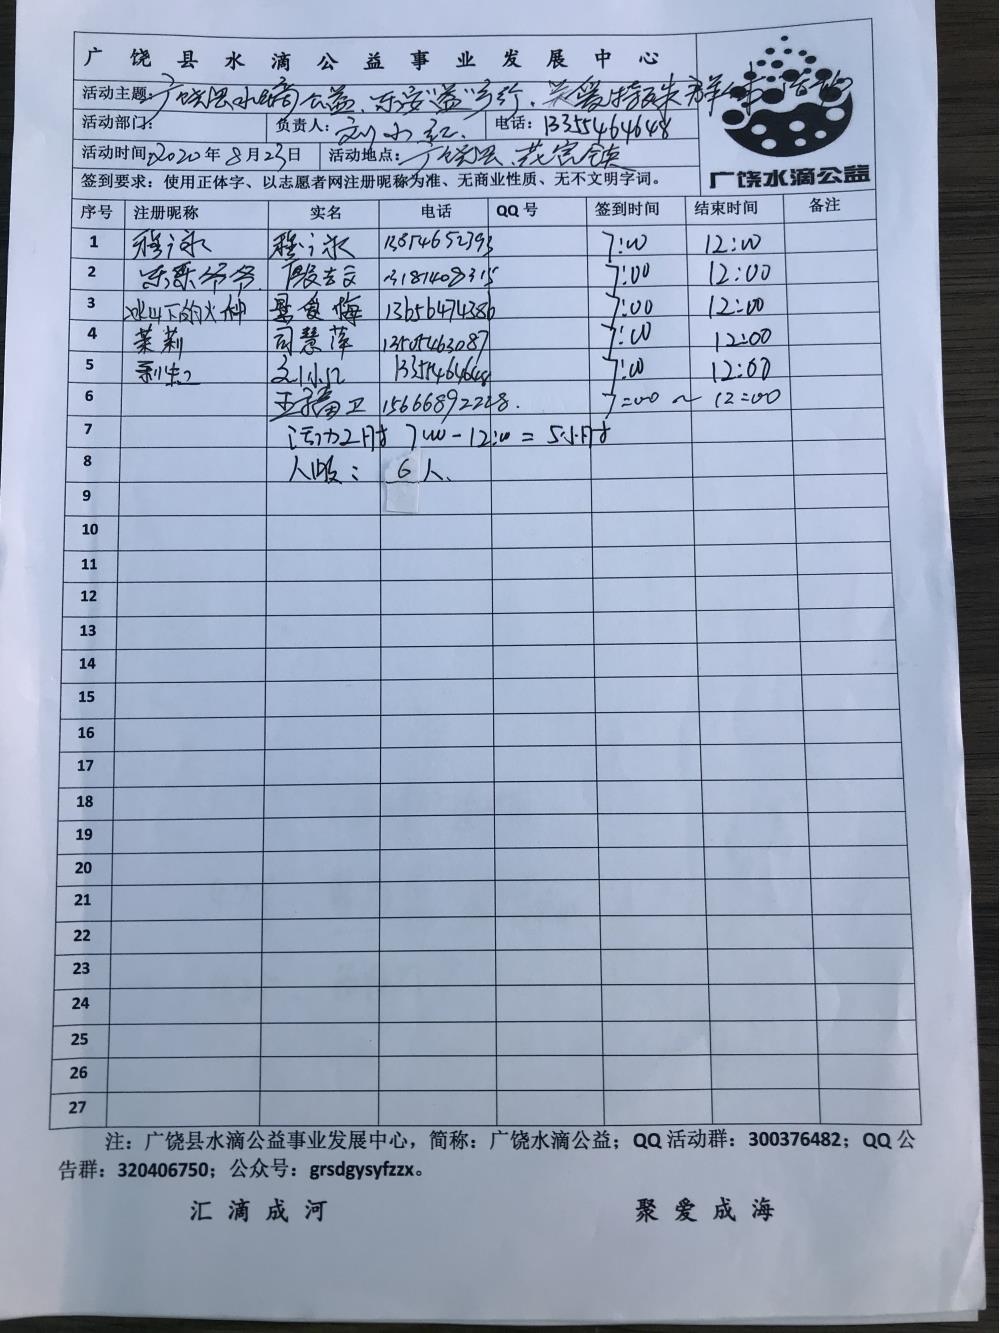 广饶县水滴公益事业发展中心
活动主题：广饶县水滴公益、乐安"益"乡行、关爱特殊群体活动
活动部门： 负责人：刘小红 电话：13355464648
活动时间：2020年8月23日 活动地点：广饶县、花官镇
签到要求：使用正体字、以志愿者网注册昵称为准、无商业性质、无不文明字词。
广饶水滴公益
序号 注册昵称 实名 电话 QQ 号 签到时间 结束时间 备注
1 13854652393 7:00 12:00
2 爷爷 7:00 12:00
3 冰山下的火种 13656474386 7:00 12:00
4 茉莉 司慧萍 7:00 12:00
5 刘小红 13355464648 7:00 12:00
6 卫 15666892228. 7=00 ~ 12=00
7 活动工时 7:00-12:00=5小时
8 人数： 6人.
9
10
11
12
13
14
15
16
17
18
19
20
21
22
23
24
25
26
27
注：广饶县水滴公益事业发展中心，简称：广饶水滴公益；QQ 活动群：300376482；QQ 公
告群：320406750；公众号：grsdgysyfzzx。
汇滴成河 聚爱成海